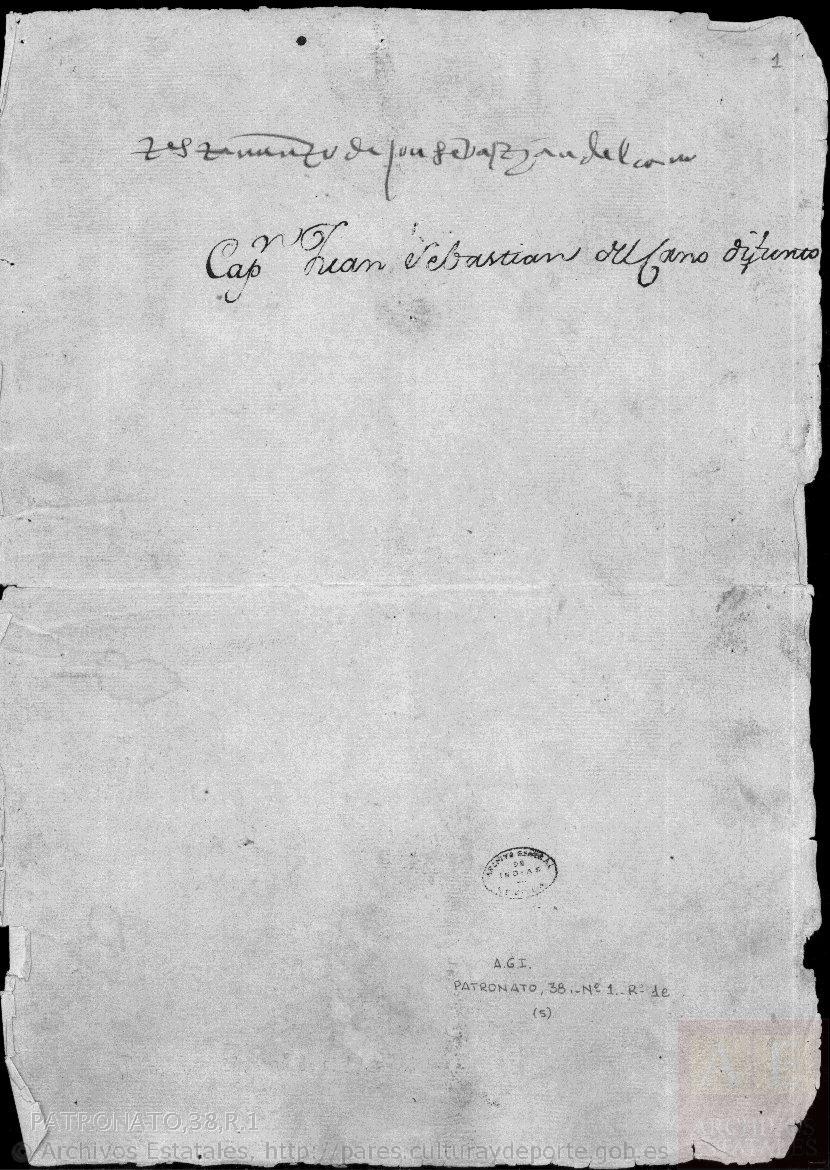 1
testamento de jun sebastian del cano
Cap.n Juan Sebastian del Cano difunto
ARCHIVO GENERAL
DE
INDIAS
SEVILLA
A.G.I.
PATRONATO, 38.-Nº 1.-R-1e
(5)
PATRONATO,38,R.1
© Archivos Estatales, http://pares.culturaydeporte.gob.es
AE
ARCHIVOS
ESTATALES